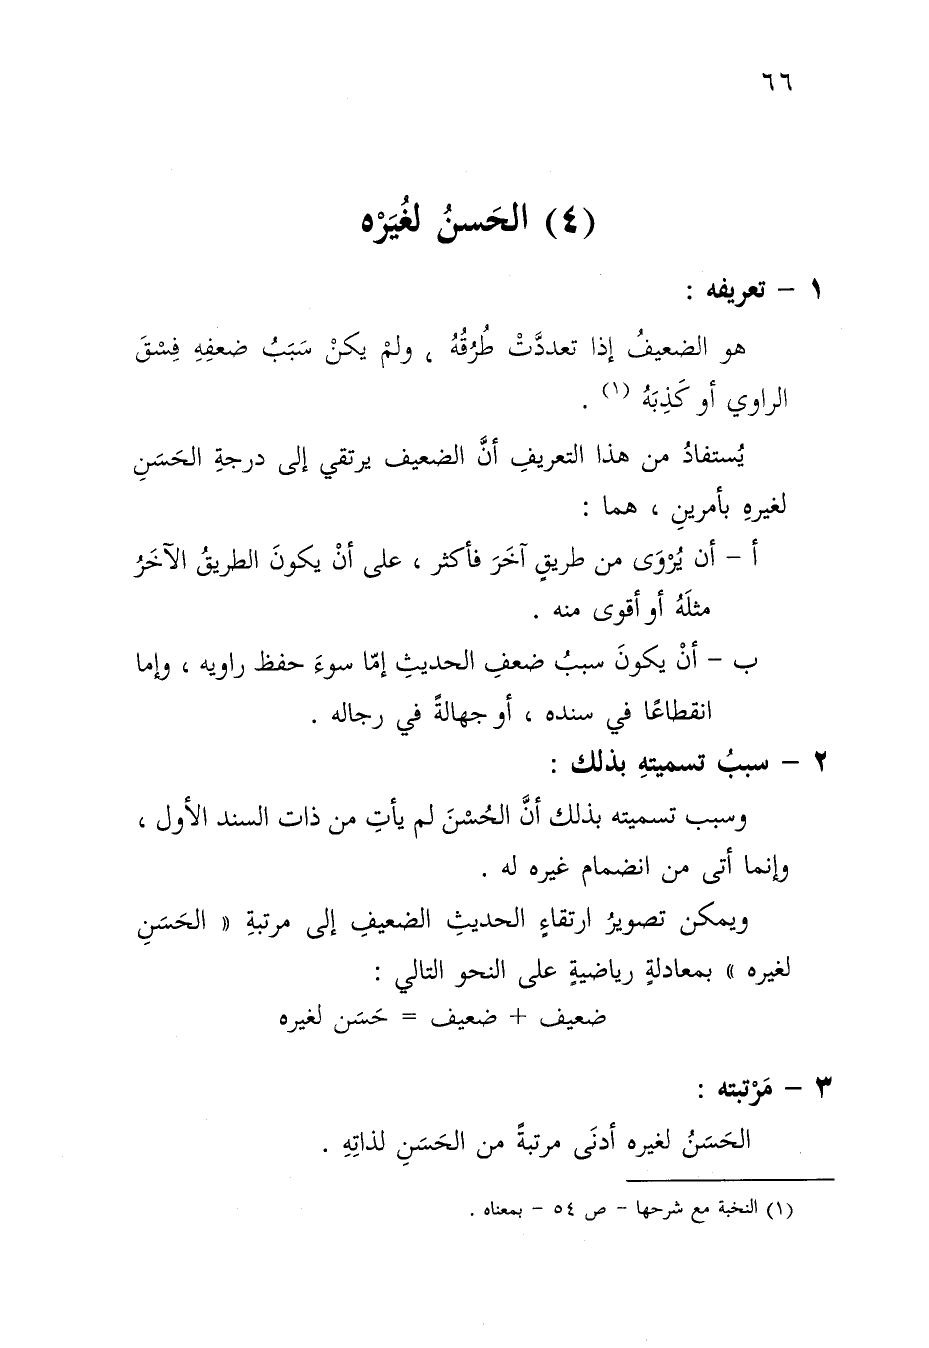 ٦٦
(٤) الحَسنُ لغُيَرْه
١ – تعريفه :
هو الضعيفُ إذا تعددَّتْ طُرُقُهُ ، ولمْ يكنْ سَبَبُ ضعفِهِ فِسْقَ
الراوي أو كَذِبَهُ (١) .
يُستفادُ من هذا التعريفِ أنَّ الضعيف يرتقي إلى درجةِ الحَسَنِ
لغيرهِ بأمرينِ ، هما :
أ – أن يُرْوَى من طريقٍ آخَرَ فأكثر ، على أنْ يكونَ الطريقُ الآخَرُ
مثلَهُ أو أقوى منه .
ب – أنْ يكونَ سببُ ضعفِ الحديثِ إمّا سوءَ حفظ راويه ، وإما
انقطاعًا في سنده ، أو جهالةً في رجاله .
٢ – سببُ تسميتهِ بذلك :
وسبب تسميته بذلك أنَّ الحُسْنَ لم يأتِ من ذات السند الأول ،
وإنما أتى من انضمام غيره له .
ويمكن تصويرُ ارتقاءِ الحديثِ الضعيفِ إلى مرتبةِ « الحَسَنِ
لغيره » بمعادلةٍ رياضيةٍ على النحو التالي :
ضعيف + ضعيف = حَسَن لغيره
٣ – مَرْتبته :
الحَسَنُ لغيره أدنَى مرتبةً من الحَسَنِ لذاتِهِ .
(١) النخبة مع شرحها – ص ٥٤ – بمعناه .